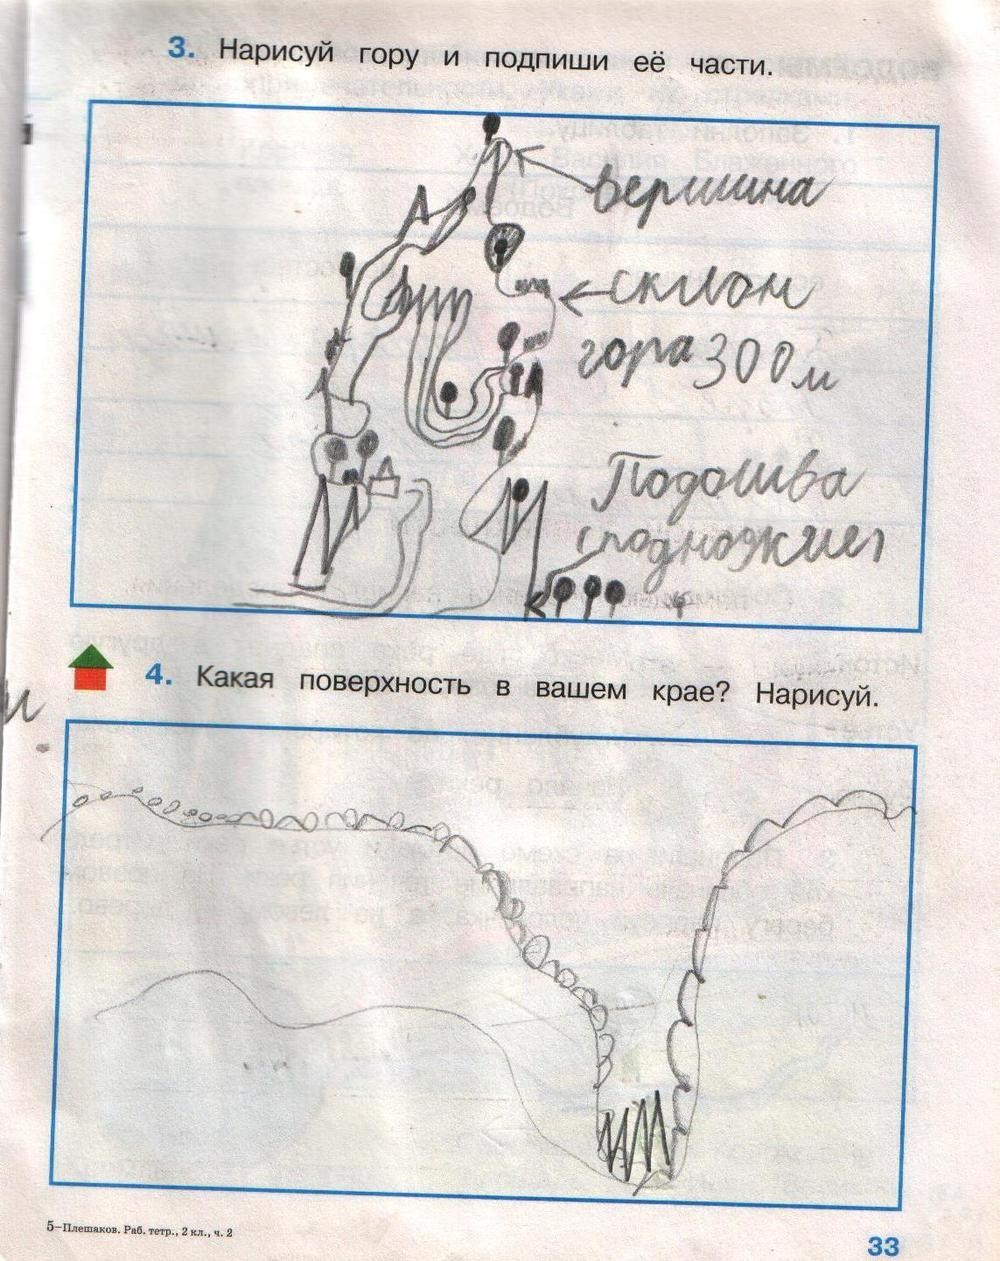 3. Нарисуй гору и подпиши её части.
вершина
склон
гора 300м
Подошва
(подножие)
4. Какая поверхность в вашем крае? Нарисуй.
5–Плешаков. Раб. тетр., 2 кл., ч. 2
33